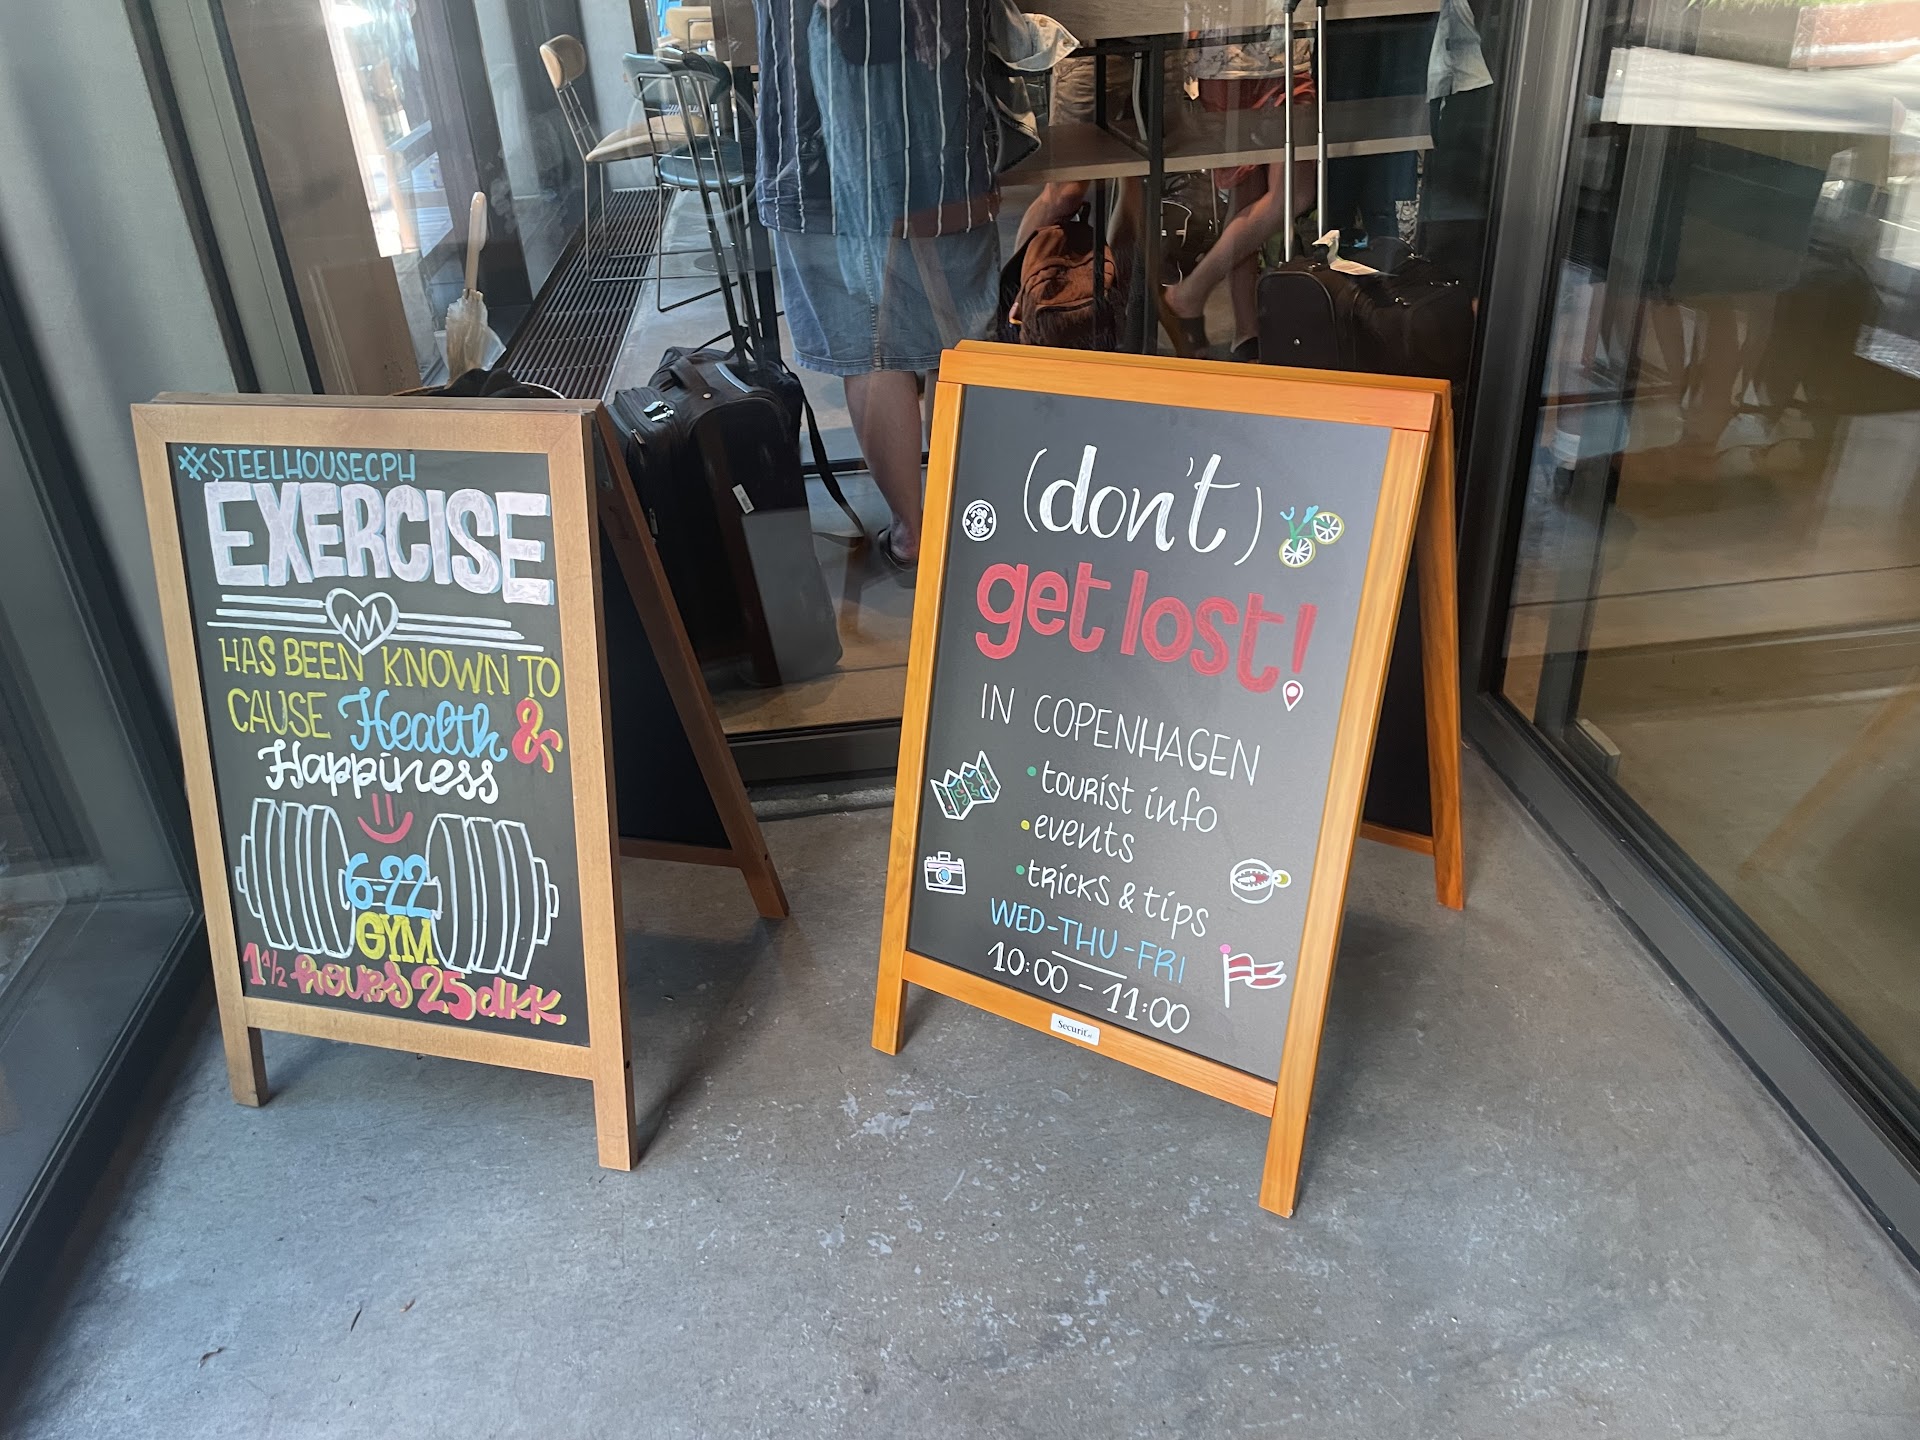 #STEELHOUSECPH
EXERCISE
HAS BEEN KNOWN TO
CAUSE Health &
Happiness
6-22
GYM
1 1/2 hours 25 dkk
(don't)
get lost!
IN COPENHAGEN
• tourist info
• events
• tricks & tips
WED-THU-FRI
10:00 - 11:00
Securit